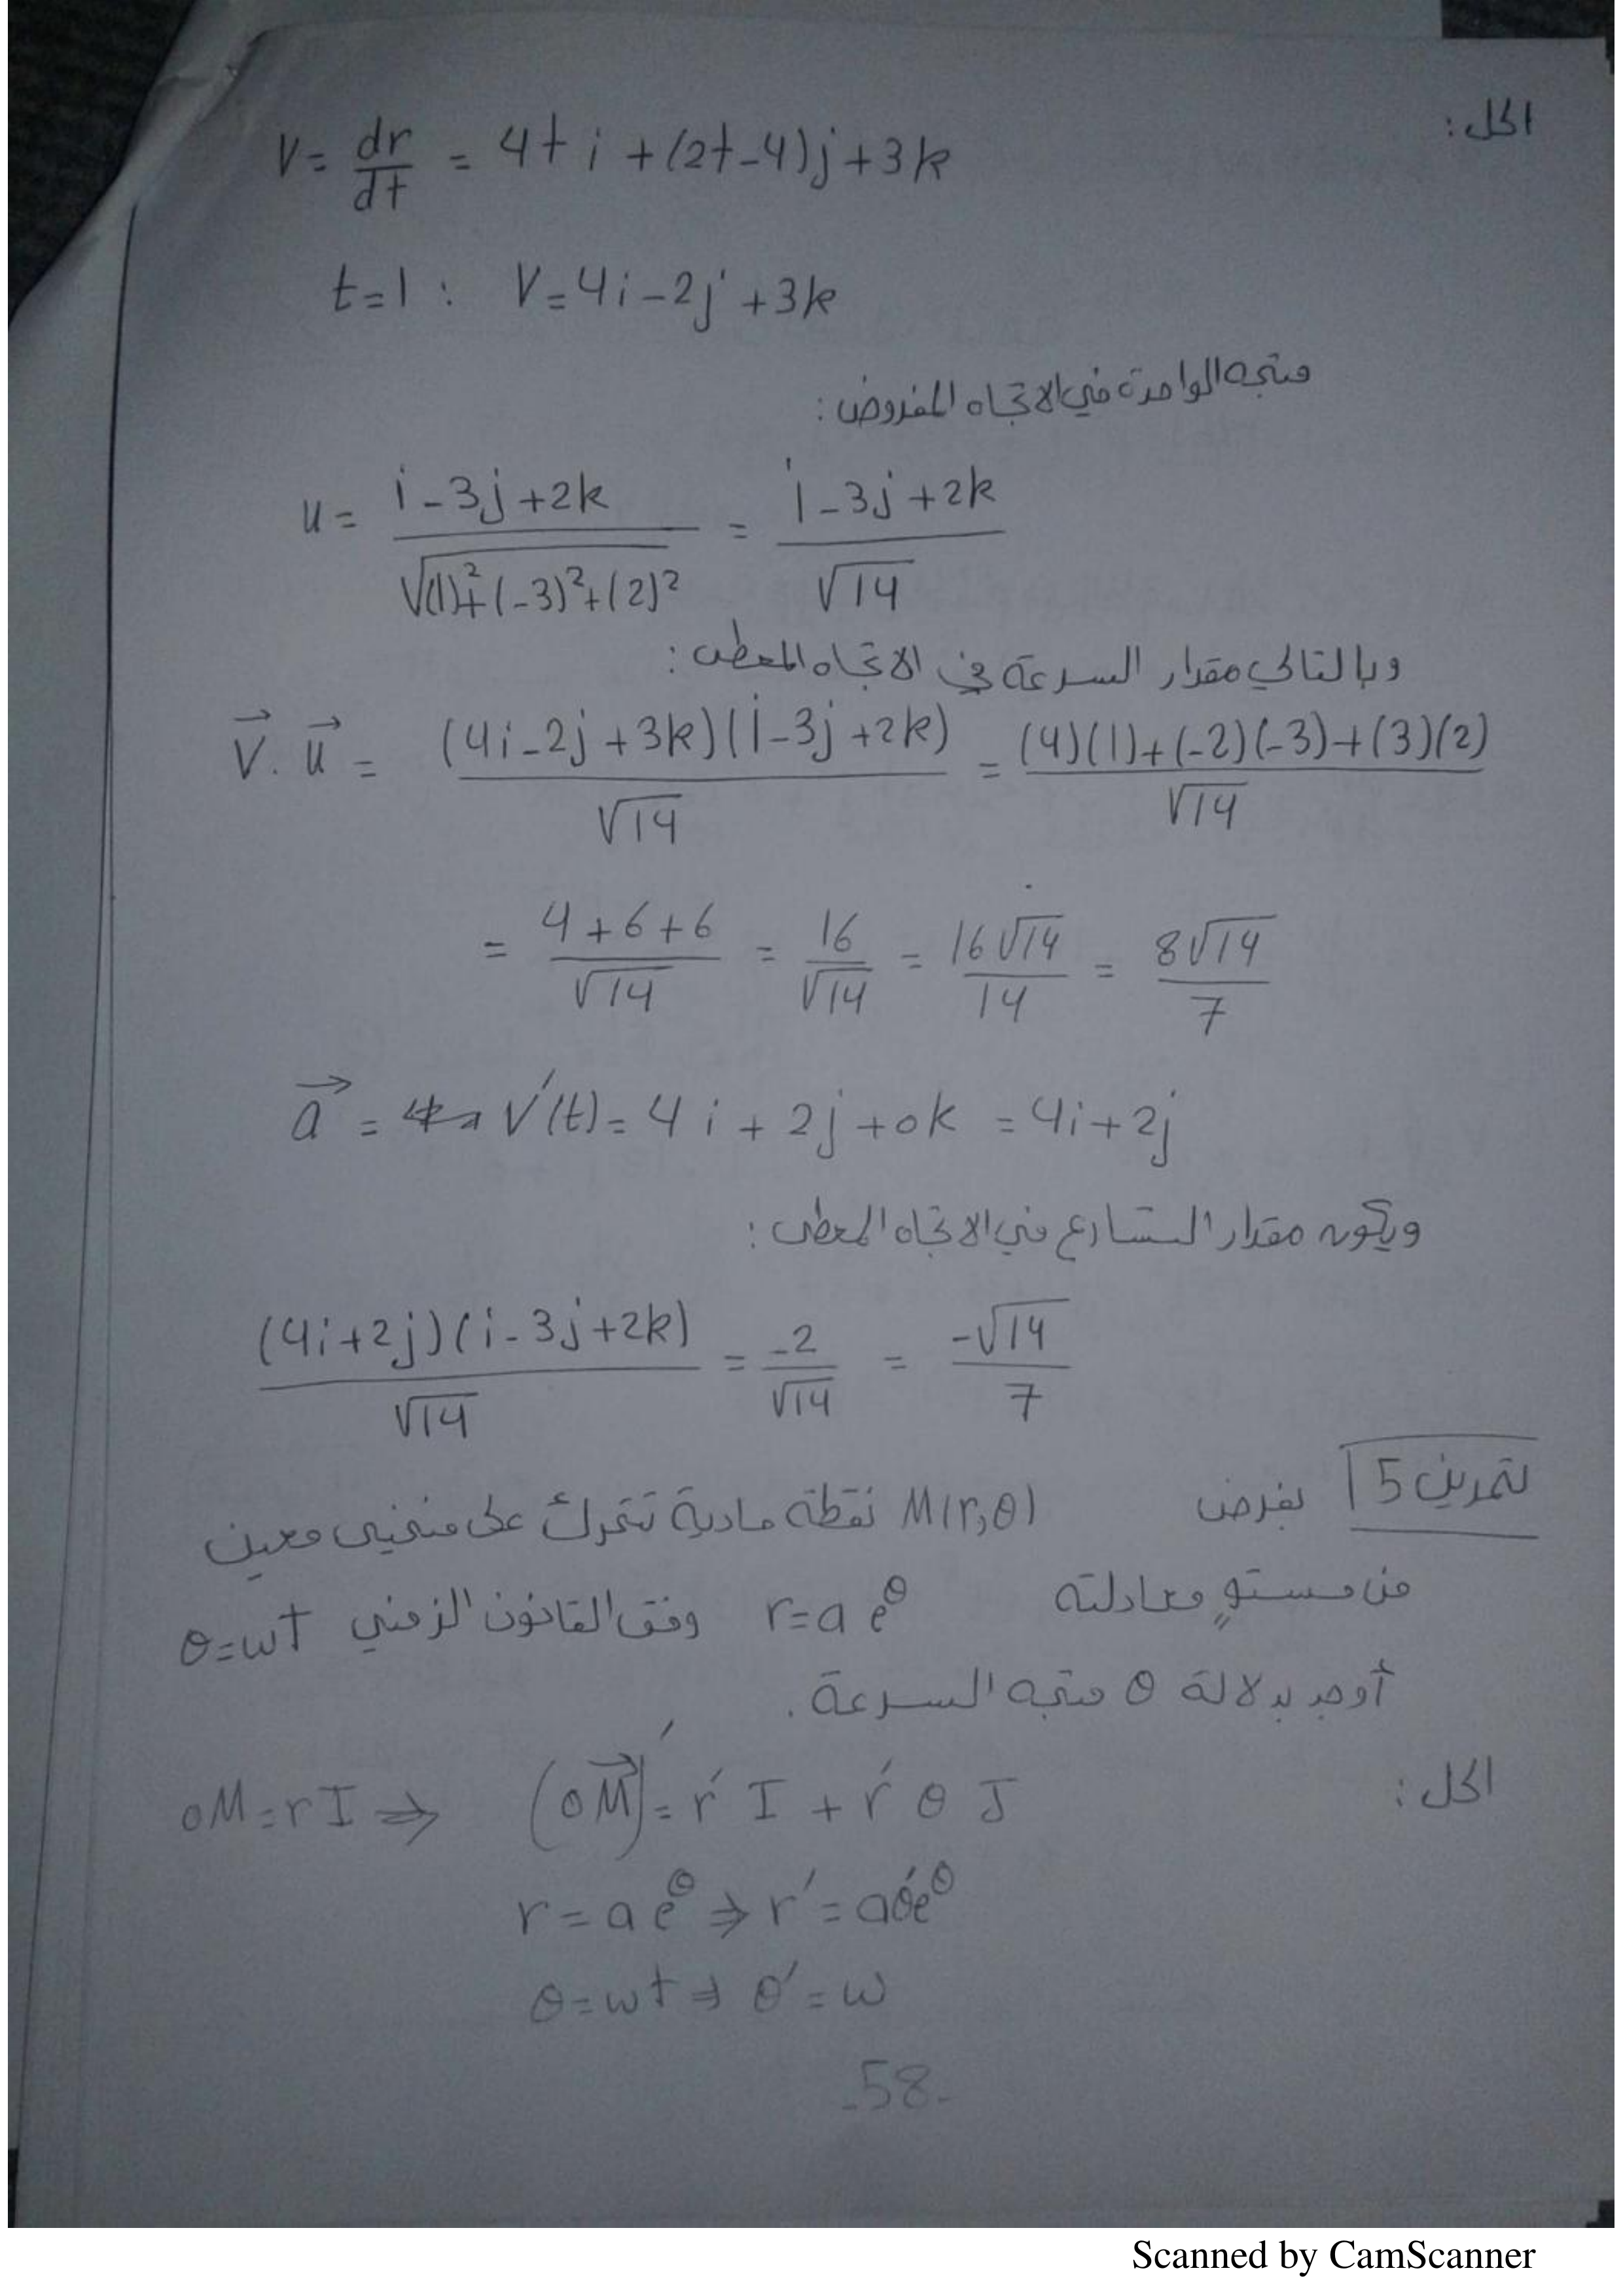 الحل:
V = dr/dt = 4t i + (2t-4)j + 3k
t=1 : V = 4i - 2j + 3k
متجه الواحدة في الاتجاه المفروض:
u = (i - 3j + 2k)/√((1)²+(-3)²+(2)²) = (i - 3j + 2k)/√14
وبالتالي مقدار السرعة في الاتجاه المعطى:
V⃗ . u⃗ = (4i - 2j + 3k)(i - 3j + 2k)/√14 = ((4)(1)+(-2)(-3)+(3)(2))/√14
= (4+6+6)/√14 = 16/√14 = 16√14/14 = 8√14/7
a⃗ = V′(t) = 4i + 2j + 0k = 4i + 2j
ويكون مقدار التسارع في الاتجاه المعطى:
(4i+2j)(i-3j+2k)/√14 = -2/√14 = -√14/7
تمرين 5 بفرض M(r,θ) نقطة مادية تتحرك على منحني معين
من مستوٍ معادلته r = a e^θ وفق القانون الزمني θ=wt
أوجد بدلالة θ متجه السرعة.
الحل:
oM = rI ⇒ (oM⃗)′ = r′ I + r′ θ J
r = a e^θ ⇒ r′ = aθ′e^θ
θ = wt ⇒ θ′ = w
-58-
Scanned by CamScanner